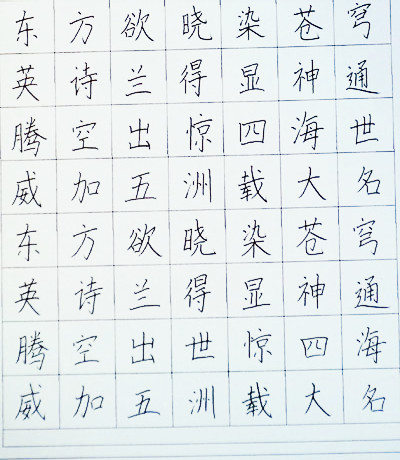 东方欲晓染苍穹
英诗兰得显神通
腾空出惊四海世
威加五洲载大名
东方欲晓染苍穹
英诗兰得显神通
腾空出世惊四海
威加五洲载大名